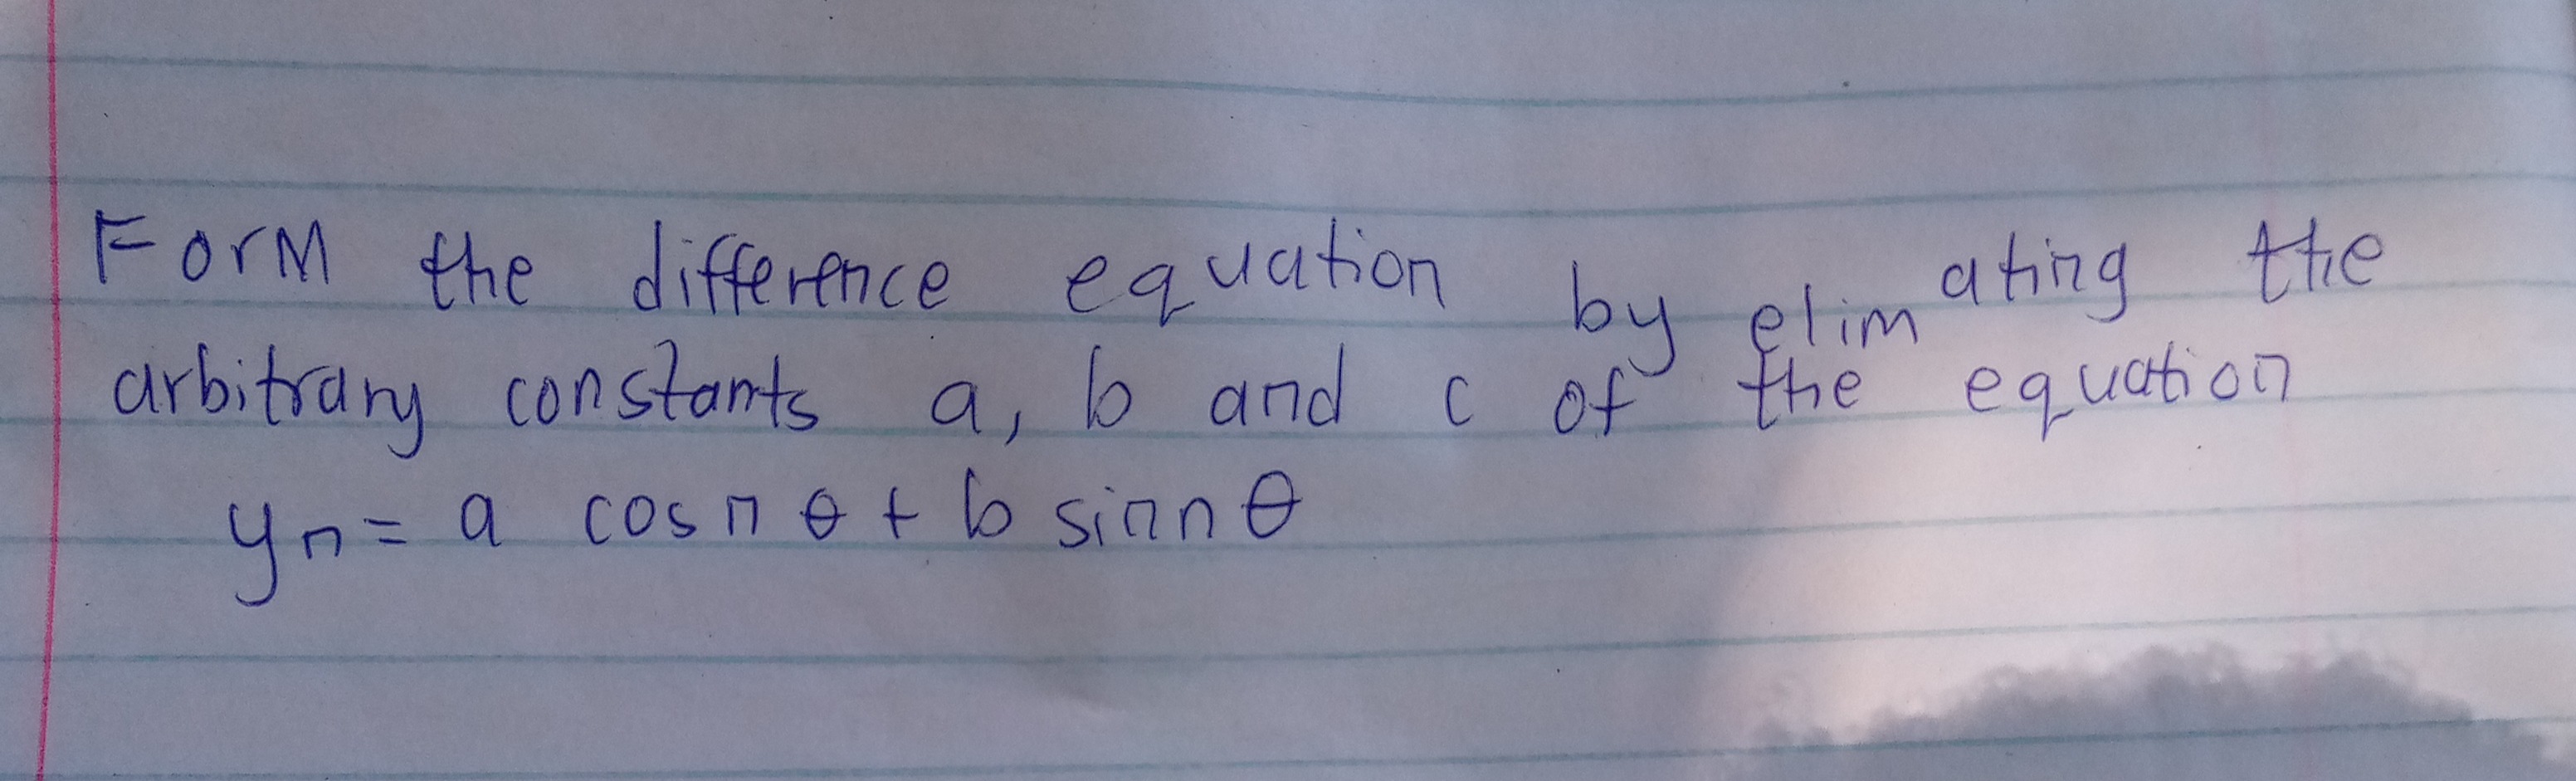 Form the difference equation by elimating the
arbitrary constants a, b and c of the equation
yn = a cos n θ + b sin n θ